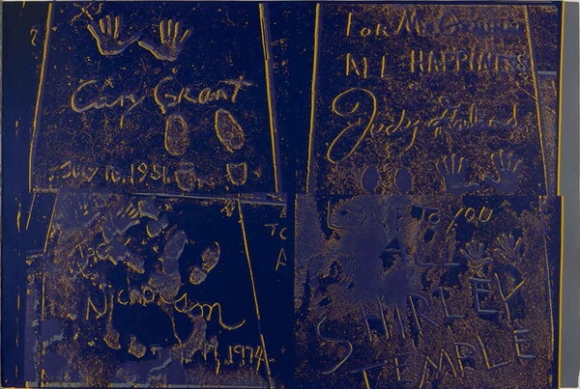 Cary Grant
July 16, 1951
For Mr. Grauman
ALL HAPPINESS
Judy Holland
Jack
Nicholson
1974
LOVE TO YOU
SHIRLEY
TEMPLE